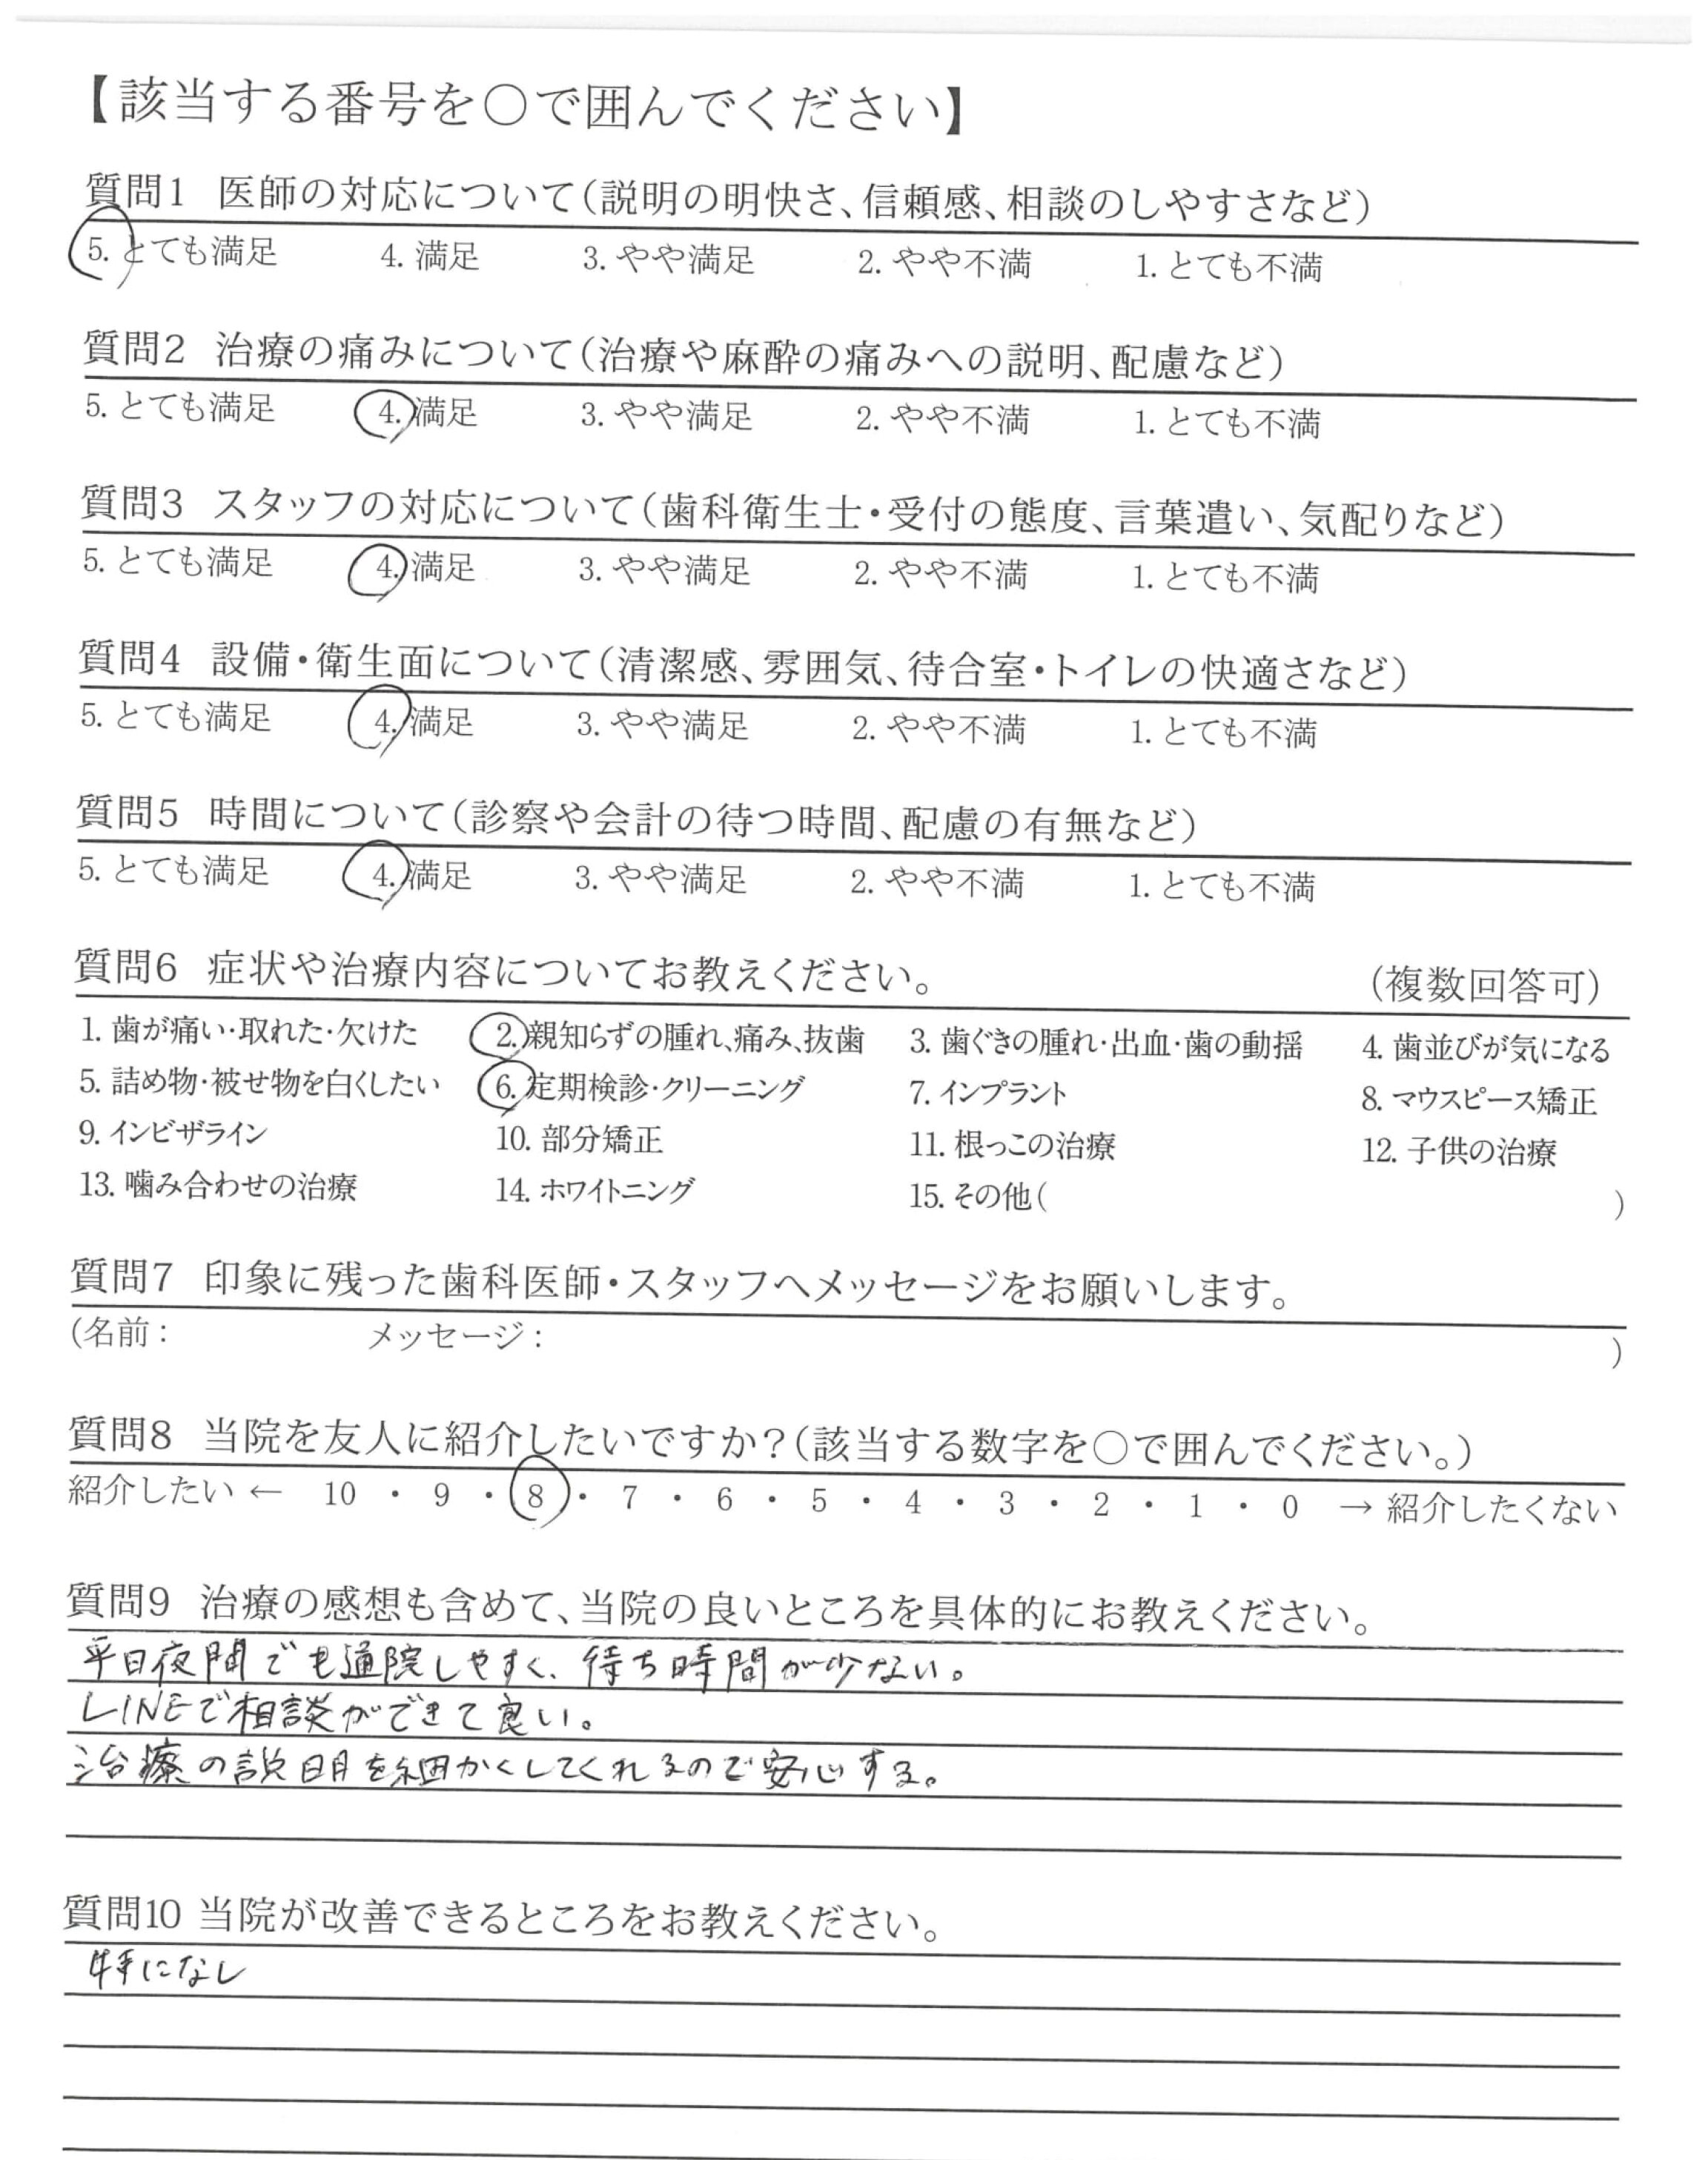 【該当する番号を○で囲んでください】
質問1 医師の対応について(説明の明快さ、信頼感、相談のしやすさなど)
5. とても満足 4. 満足 3. やや満足 2. やや不満 1. とても不満
質問2 治療の痛みについて(治療や麻酔の痛みへの説明、配慮など)
5. とても満足 4. 満足 3. やや満足 2. やや不満 1. とても不満
質問3 スタッフの対応について(歯科衛生士・受付の態度、言葉遣い、気配りなど)
5. とても満足 4. 満足 3. やや満足 2. やや不満 1. とても不満
質問4 設備・衛生面について(清潔感、雰囲気、待合室・トイレの快適さなど)
5. とても満足 4. 満足 3. やや満足 2. やや不満 1. とても不満
質問5 時間について(診察や会計の待つ時間、配慮の有無など)
5. とても満足 4. 満足 3. やや満足 2. やや不満 1. とても不満
質問6 症状や治療内容についてお教えください。 (複数回答可)
1. 歯が痛い・取れた・欠けた 2. 親知らずの腫れ、痛み、抜歯 3. 歯ぐきの腫れ・出血・歯の動揺 4. 歯並びが気になる
5. 詰め物・被せ物を白くしたい 6. 定期検診・クリーニング 7. インプラント 8. マウスピース矯正
9. インビザライン 10. 部分矯正 11. 根っこの治療 12. 子供の治療
13. 噛み合わせの治療 14. ホワイトニング 15. その他( )
質問7 印象に残った歯科医師・スタッフへメッセージをお願いします。
(名前: メッセージ: )
質問8 当院を友人に紹介したいですか?(該当する数字を○で囲んでください。)
紹介したい ← 10 ・ 9 ・ 8 ・ 7 ・ 6 ・ 5 ・ 4 ・ 3 ・ 2 ・ 1 ・ 0 → 紹介したくない
質問9 治療の感想も含めて、当院の良いところを具体的にお教えください。
平日夜間でも通院しやすく、待ち時間が少ない。
LINEで相談ができて良い。
治療の説明を細かくしてくれるので安心する。
質問10 当院が改善できるところをお教えください。
特になし